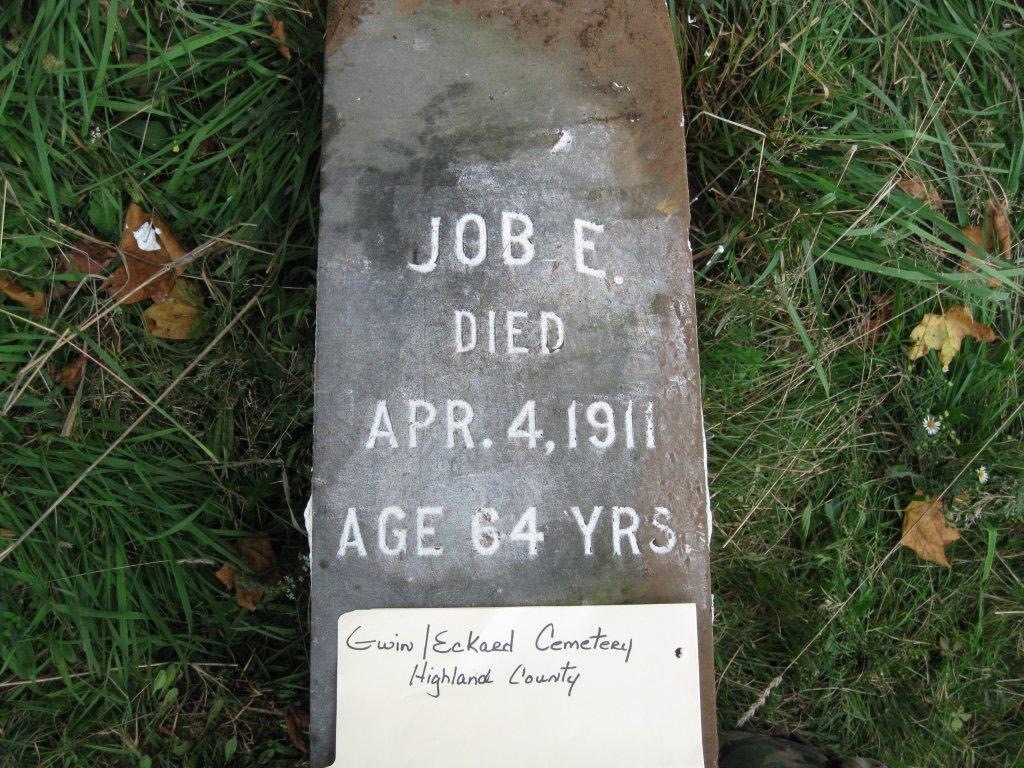 JOB E.
DIED
APR. 4, 1911
AGE 64 YRS.
Gwin/Eckard Cemetery
Highland County